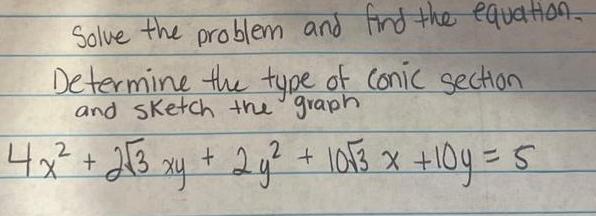 Solve the problem and find the equation.
Determine the type of conic section
and sketch the graph
4x² + 2√3 xy + 2y² + 10√3 x + 10y = 5